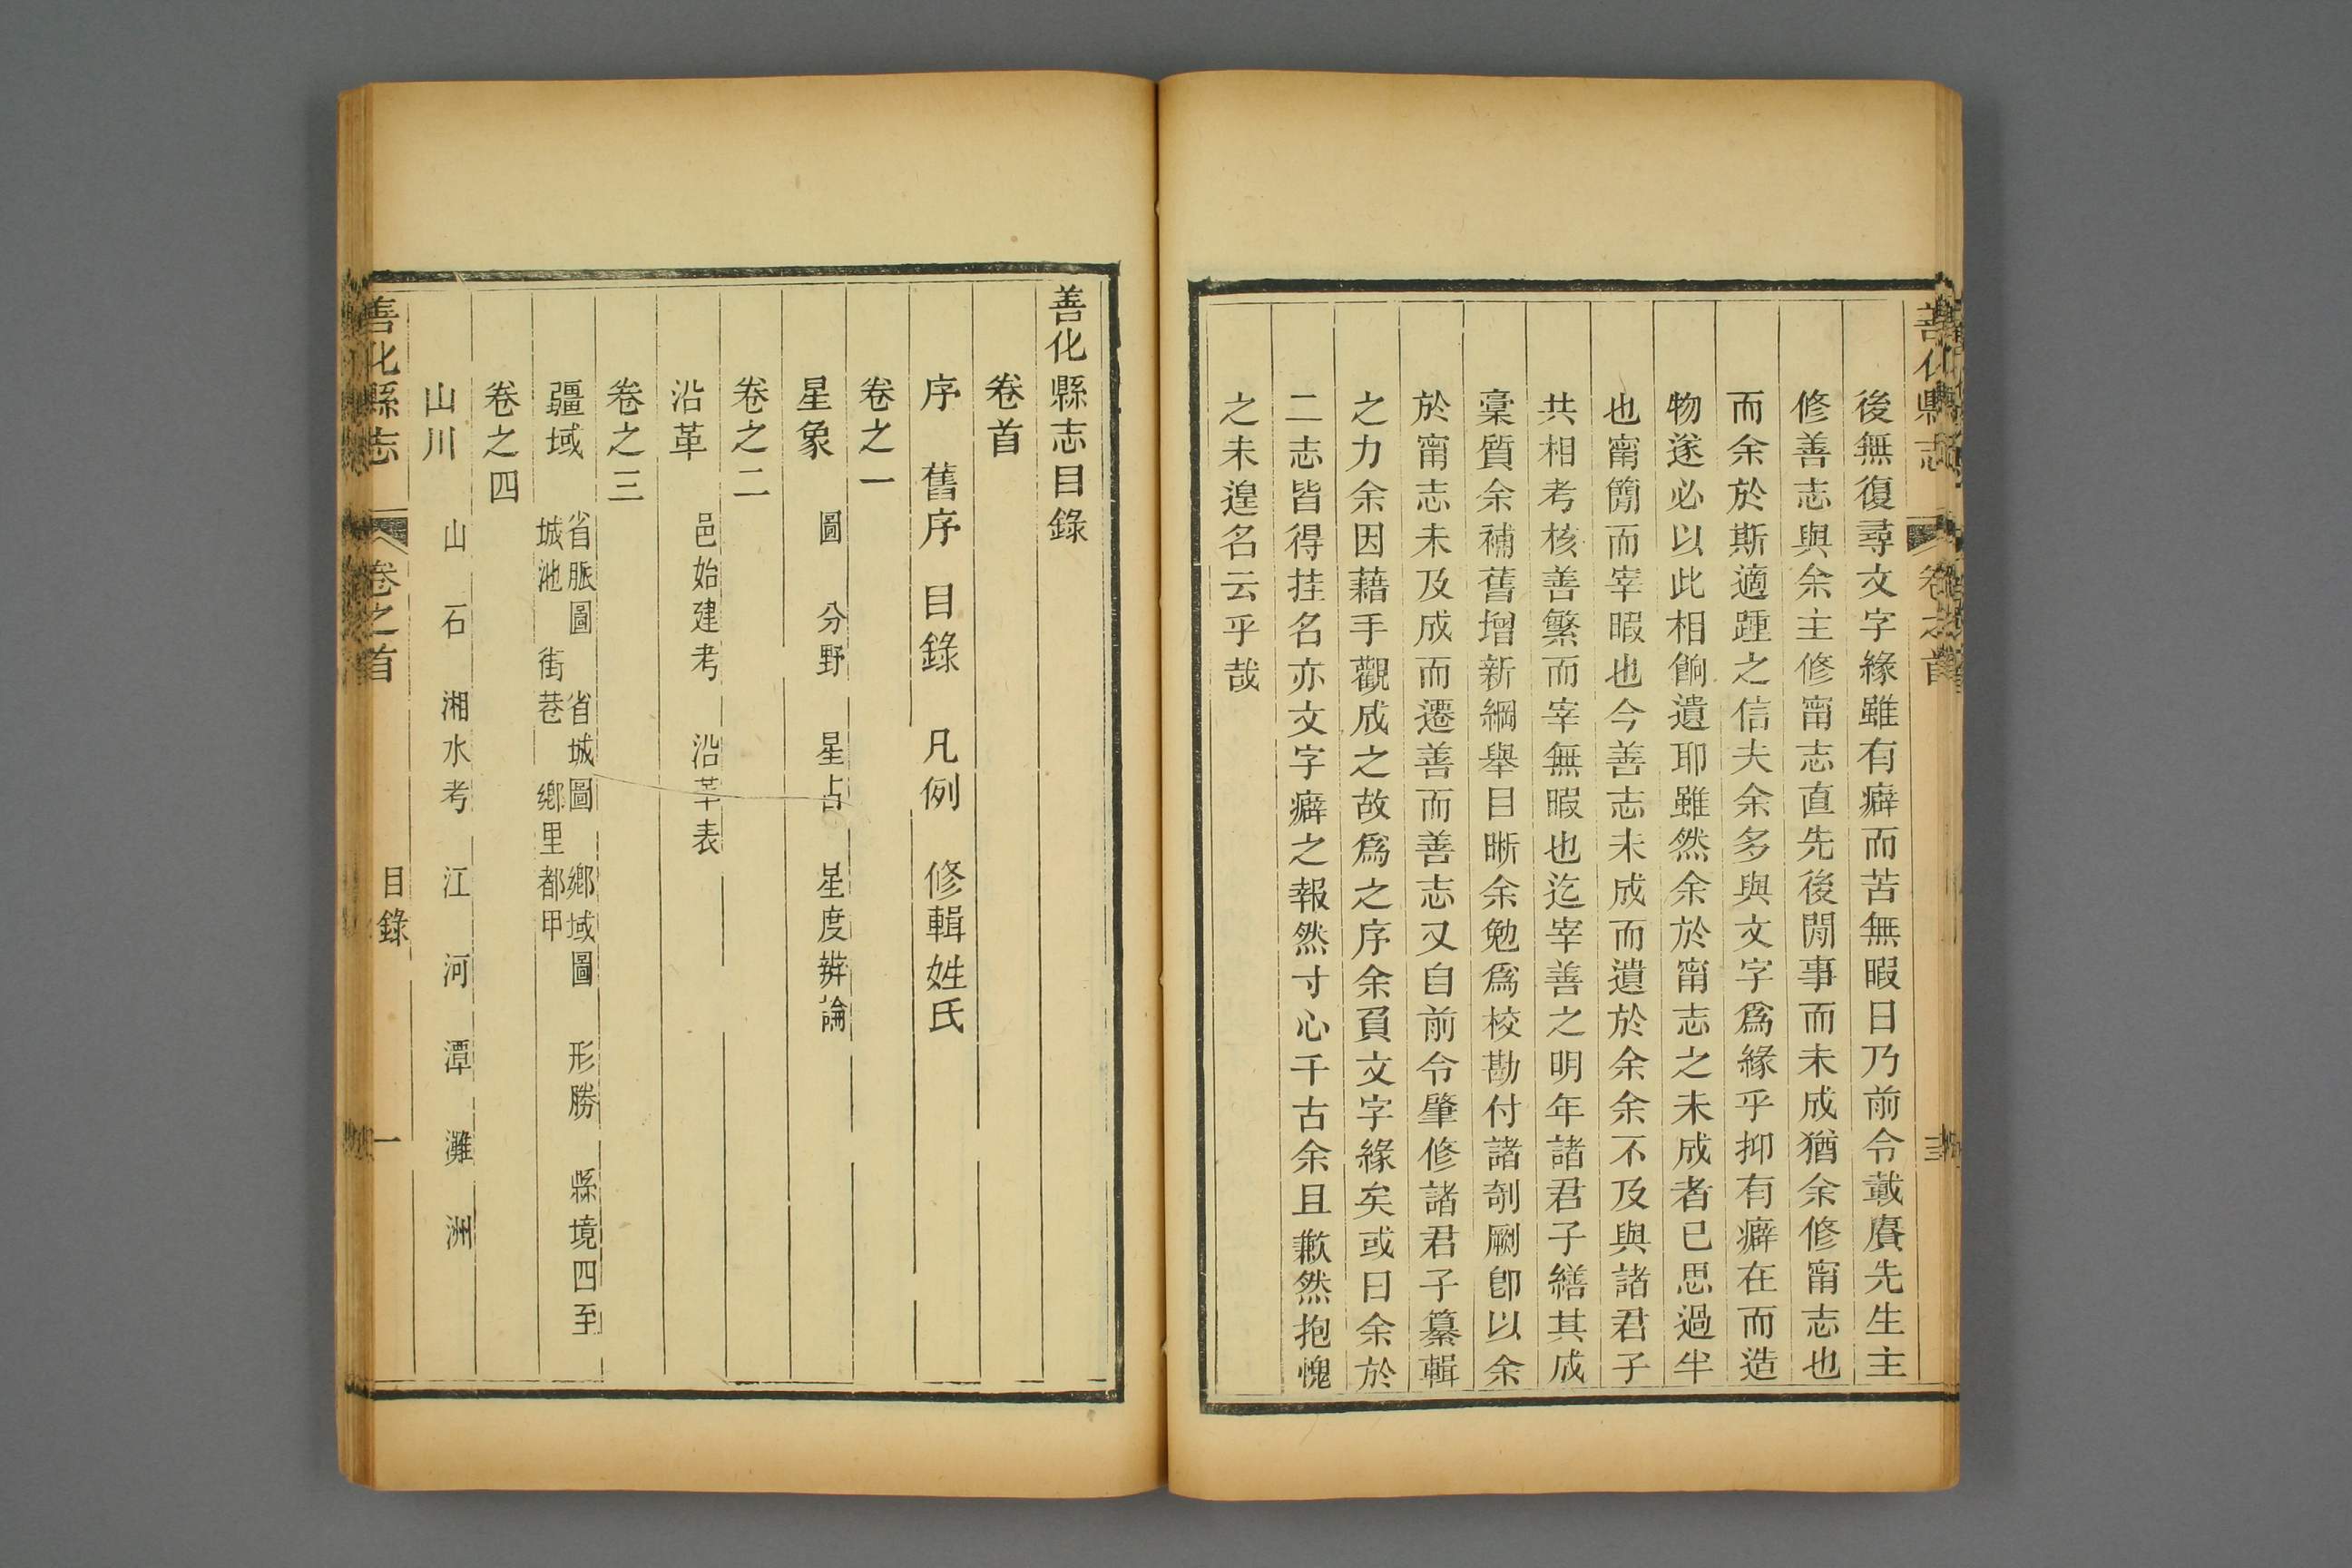 善化縣志 卷之首 三
後無復尋文字緣雖有癖而苦無暇日乃前令戴賡先生主
修善志與余主修甯志直先後閒事而未成猶余修甯志也
而余於斯適踵之信夫余多與文字爲緣乎抑有癖在而造
物遂必以此相餉遺耶雖然余於甯志之未成者已思過半
也甯簡而宰暇也今善志未成而遺於余余不及與諸君子
共相考核善繁而宰無暇也迄宰善之明年諸君子繕其成
稾質余補舊增新綱舉目晰余勉爲校勘付諸剞劂卽以余
於甯志未及成而遷善而善志又自前令肇修諸君子纂輯
之力余因藉手觀成之故爲之序余負文字緣矣或曰余於
二志皆得挂名亦文字癖之報然寸心千古余且歉然抱愧
之未遑名云乎哉
善化縣志目錄
卷首
序 舊序 目錄 凡例 修輯姓氏
卷之一
星象 圖 分野 星占 星度辨論
卷之二
沿革 邑始建考 沿革表
卷之三
疆域 省脈圖 省城圖 鄉域圖 形勝 縣境四至
城池 街巷 鄉里都甲
卷之四
山川 山 石 湘水考 江 河 潭 灘 洲
善化縣志 卷之首 目錄 一